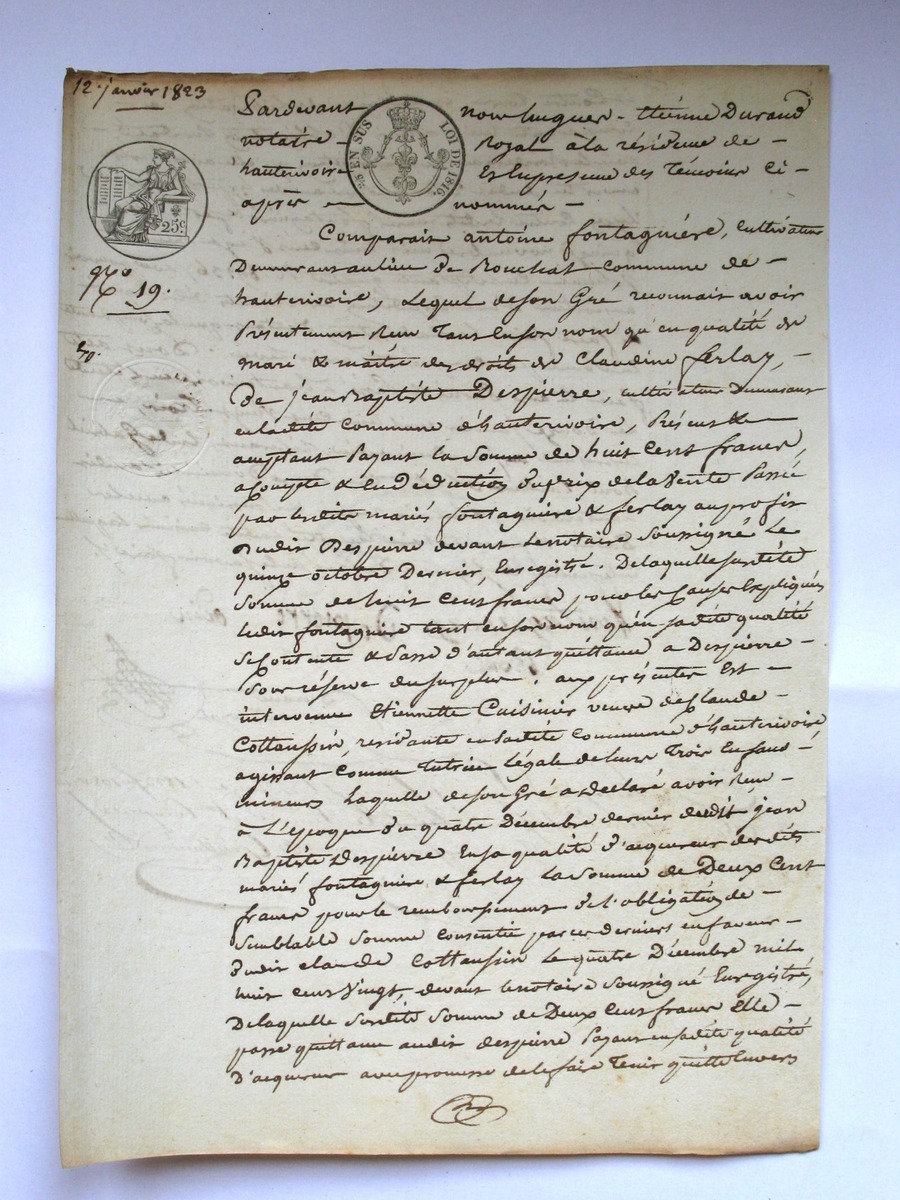 12. janvier 1823
Pardevant nous hugues - Etiénne Durand
notaire - Royal à la résidence de -
hauterivoire Et En presence des Témoins Ci -
après - nommés -
EN SUS LOI DE 1816.
25c
N.o 19.
Comparait antoine fontagnière, Cultivateur
Demeurant au lieu de Rouchat Commune de -
hauterivoire, Lequel de son Gré reconnait avoir
Présentement Recu Tant En son nom qu'en qualité de
mari & maitre des droits de Claudine ferlay, -
De jean Baptiste Despierre, cultivateur Demeurant
en la dite Commune d'hauterivoire, Présent &
acceptant Payant la Somme de huit Cent francs,
a Compte & En Déduction du prix de la Vente Passée
par lesdits mariés fontagnière & ferlay au profit
Dudit Despierre devant Le notaire Soussigné Le
quinze octobre Dernier, Enregistré. De laquelle susdite
Somme de huit Cent francs pour les Causes Expliquées
Ledit fontagnière tant en son nom qu'en sa dite qualité
Se Contente & Passe d'autant quittance a Despierre -
Sous réserve du surplus. aux présentes Est -
intervenue Etiennette Cuisinier veuve de Claude -
Cottaussin, résidante en la dite Commune d'hauterivoire
agissant Comme Tutrice Légale de leurs Trois Enfans -
mineurs Laquelle de son Gré a declaré avoir Recu -
à L'époque du quatre Décembre dernier dudit jean
Baptiste Despierre En sa qualité d'acquereur desdits
mariés fontagnière & ferlay La Somme de Deux Cent
francs pour le remboursement de l'obligation de -
Semblable Somme Consentie par ces derniers en faveur -
dudit Claude Cottaussin Le quatre Décembre mil
huit Cent Vingt, devant Le notaire Soussigné Enregistré,
De laquelle Susdite Somme de Deux Cent francs Elle -
passe quittance audit despierre Payant en sa dite qualité
D'acquereur avec promesse de le faire Tenir quitte Envers